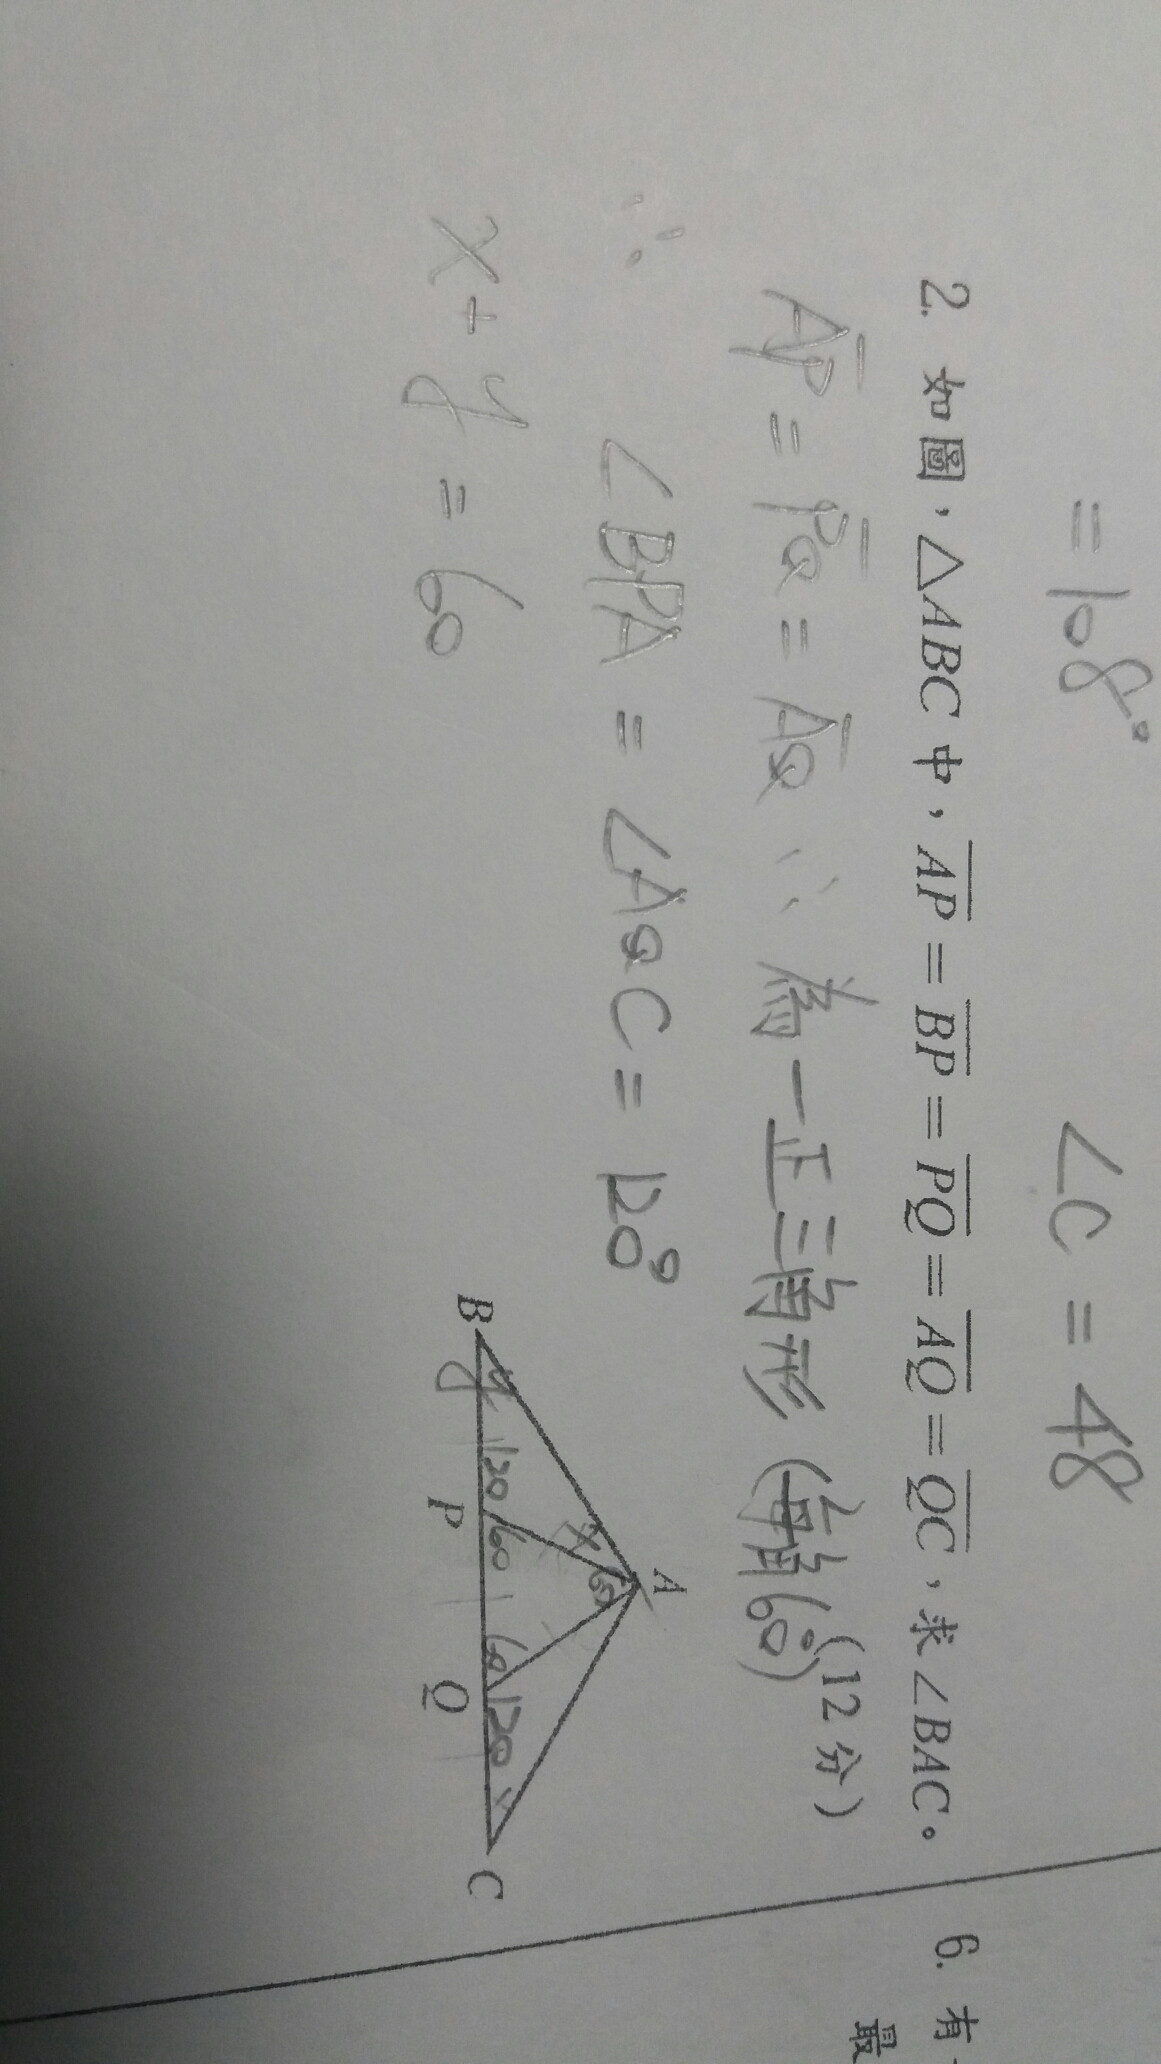 = 108°
∠C = 48
2. 如圖，△ABC 中，AP = BP = PQ = AQ = QC，求∠BAC。
(12分)
AP = PQ = AQ ∴ 為一正三角形 (每角60°)
∴ ∠BPA = ∠AQC = 120°
x + y = 60
A
x 60
B y 120 60 60 120 C
P Q
6. 有
最